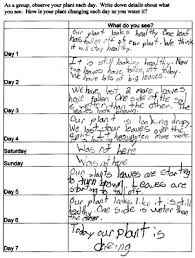 As a group, observe your plant each day. Write down details about what
you see. How is your plant changing each day as you water it?
What do you see?
Our plant looks healthy. One leaf
has fallen off of our plant. We think
it is healthy.
Day 1
It is still looking healthy. No
leaves have fallen off today.
We have lots of big leaves.
Day 2
We have lost 2 more leaves
have fallen. One side of the
the other.
Day 3
Our plant is looking droopy.
We lost four leaves over
night.
Day 4
Saturday
Was not here
Sunday
Was not here
Our plants leaves are starting
to turn brown. Leaves are
starting to fall off.
Day 5
Our plant looks like it is still
One side is wetter than
the other.
Day 6
Today our plant is
dieing
Day 7